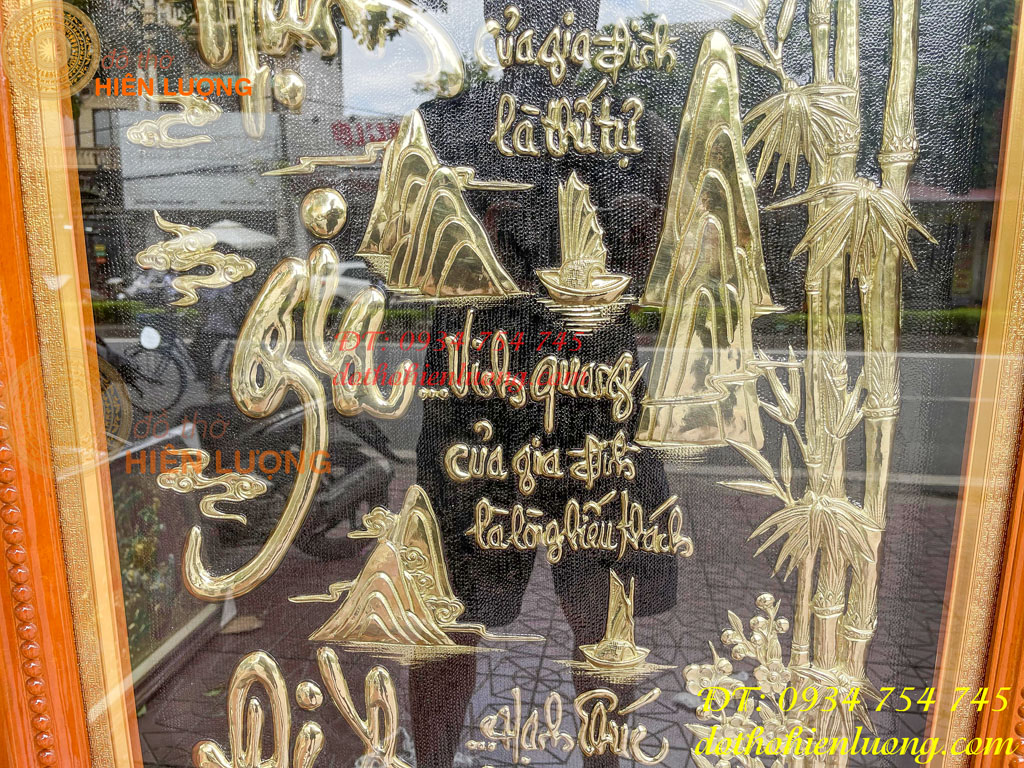 đồ thờ
HIỀN LƯƠNG
của gia đình
là thứ tự
Gìn
ĐT: 0934 754 745
...Vinh quang
dothohienluong.com
của gia đình
đồ thờ
HIỀN LƯƠNG
là lòng hiếu khách
...Hạnh Phúc
ĐT: 0934 754 745
dothohienluong.com